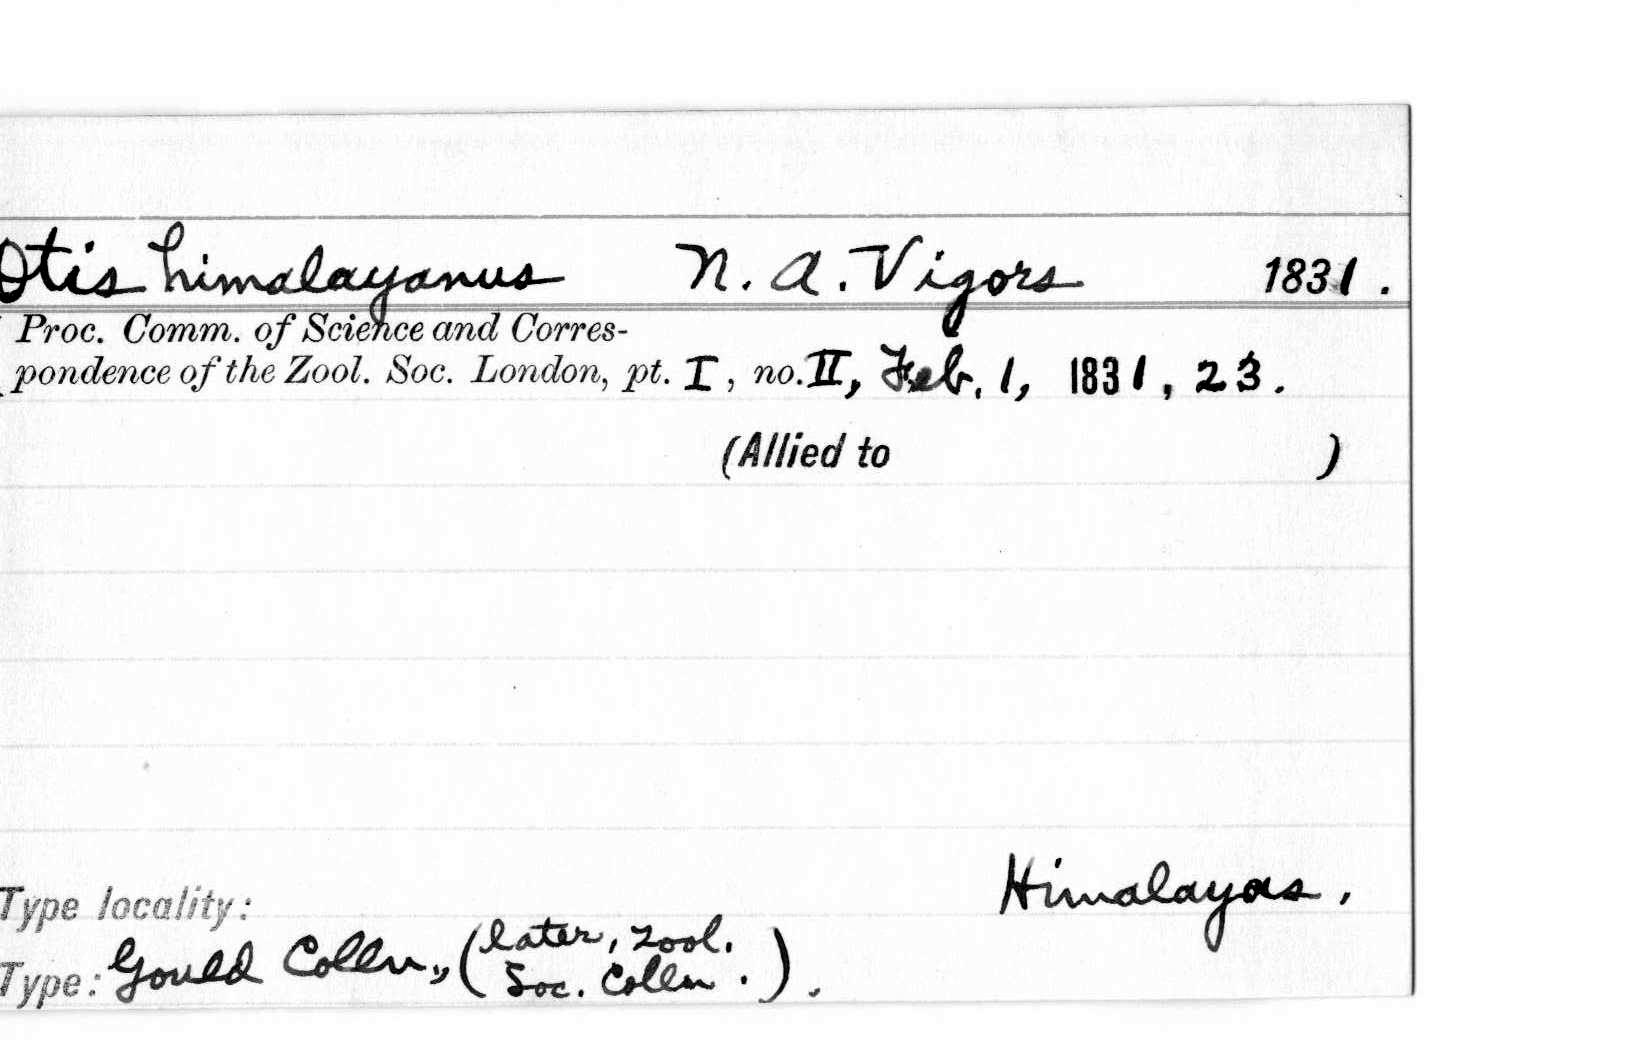 Otis himalayanus N. A. Vigors 1831.
Proc. Comm. of Science and Corres-
pondence of the Zool. Soc. London, pt. I, no. II, Feb. 1, 1831, 23.
(Allied to )
Himalayas.
Type locality:
later, Zool.
Type: Gould Colln., ( Soc. Colln. ).